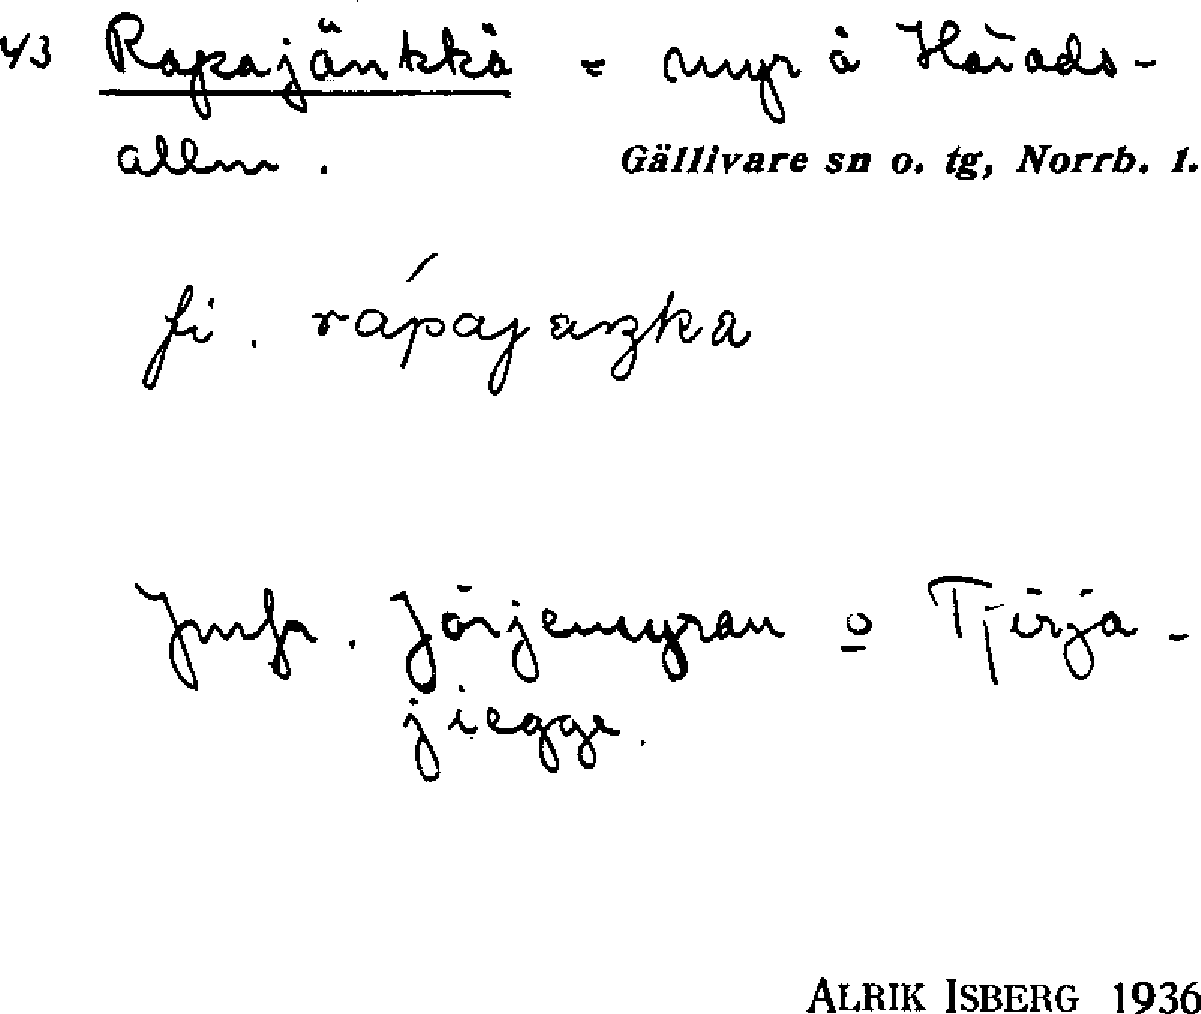 43 Rapajänkkä = myr å Härads-
allm. Gällivare sn o. tg, Norrb. 1.
fi. rápajæŋka
Jmfr. Jörjemyran o Tjirja-
jiegge.
ALRIK ISBERG 1936